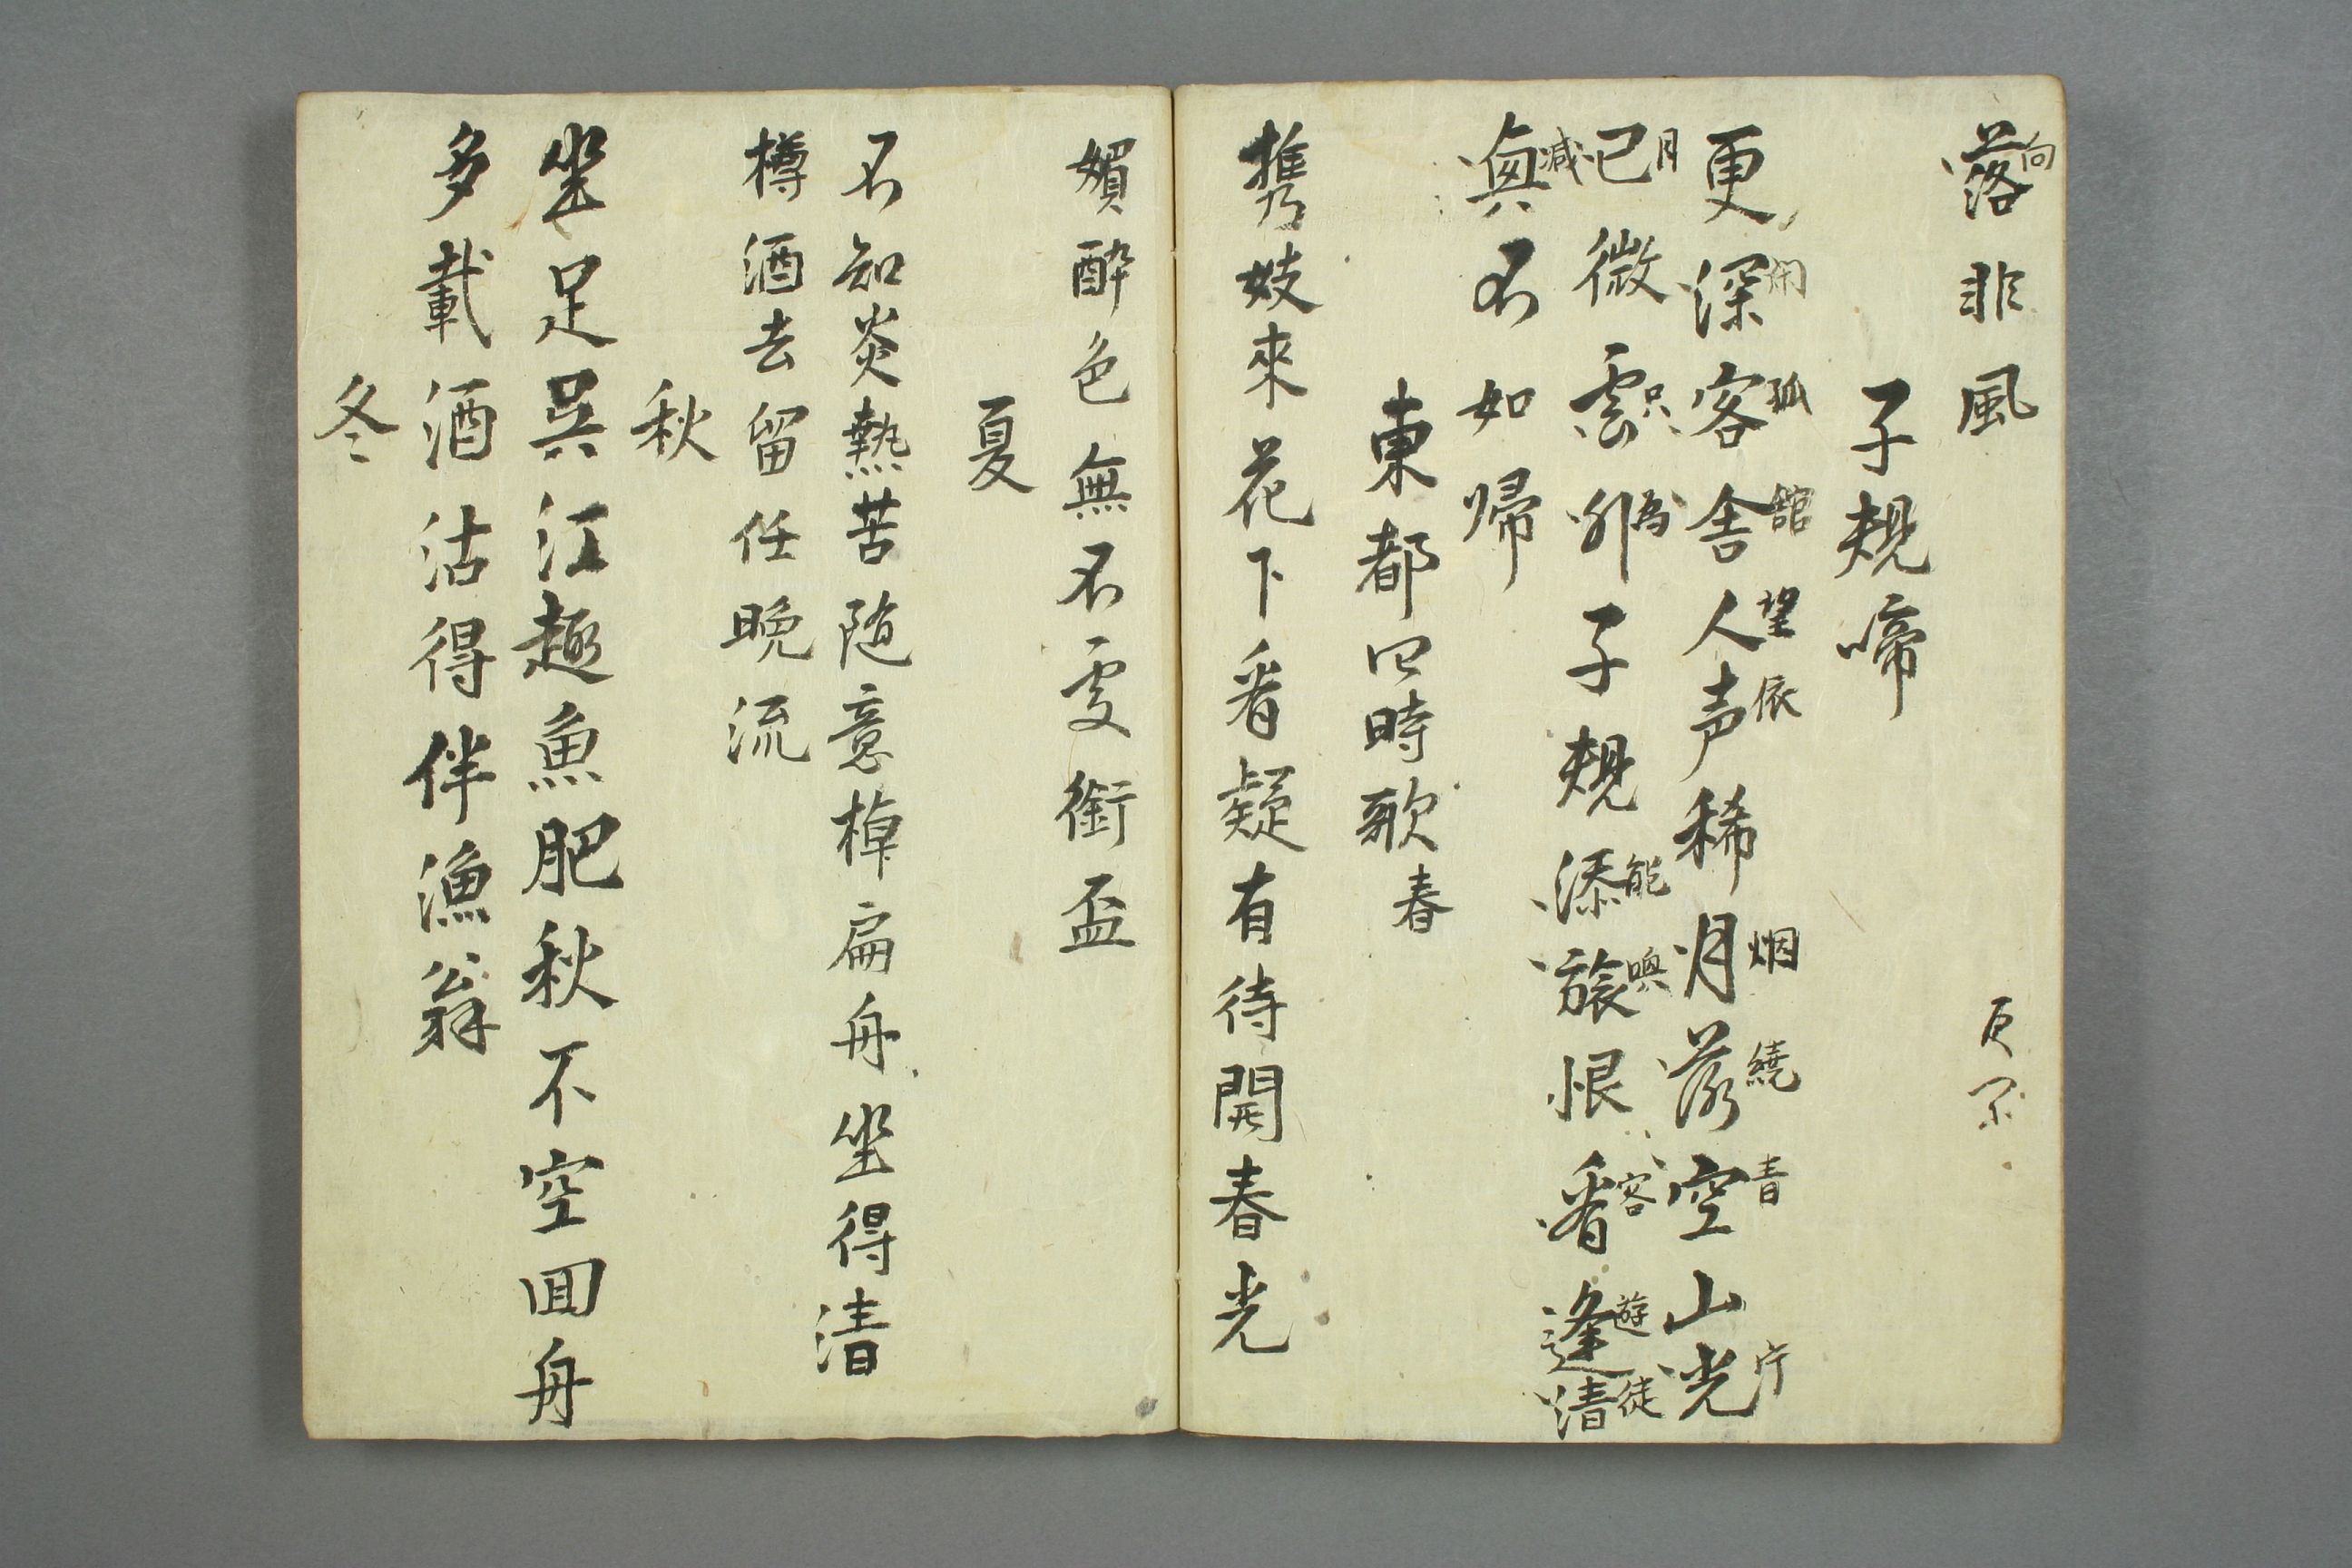 落非風
向
子規啼
更深客舎人声稀月落空山光
孤館望依烟繞青
已微雲外子規添旅恨看逢清
月只為能喚客遊徒
奥不如帰
減
東都四時歌春
携妓來花下看疑有待開春光
媚酔色無不處銜盃
夏
不知炎熱苦随意棹扁舟坐得清
樽酒去留任晩流
秋
坐足呉江趣魚肥秋不空回舟
多載酒沽得伴漁翁
冬